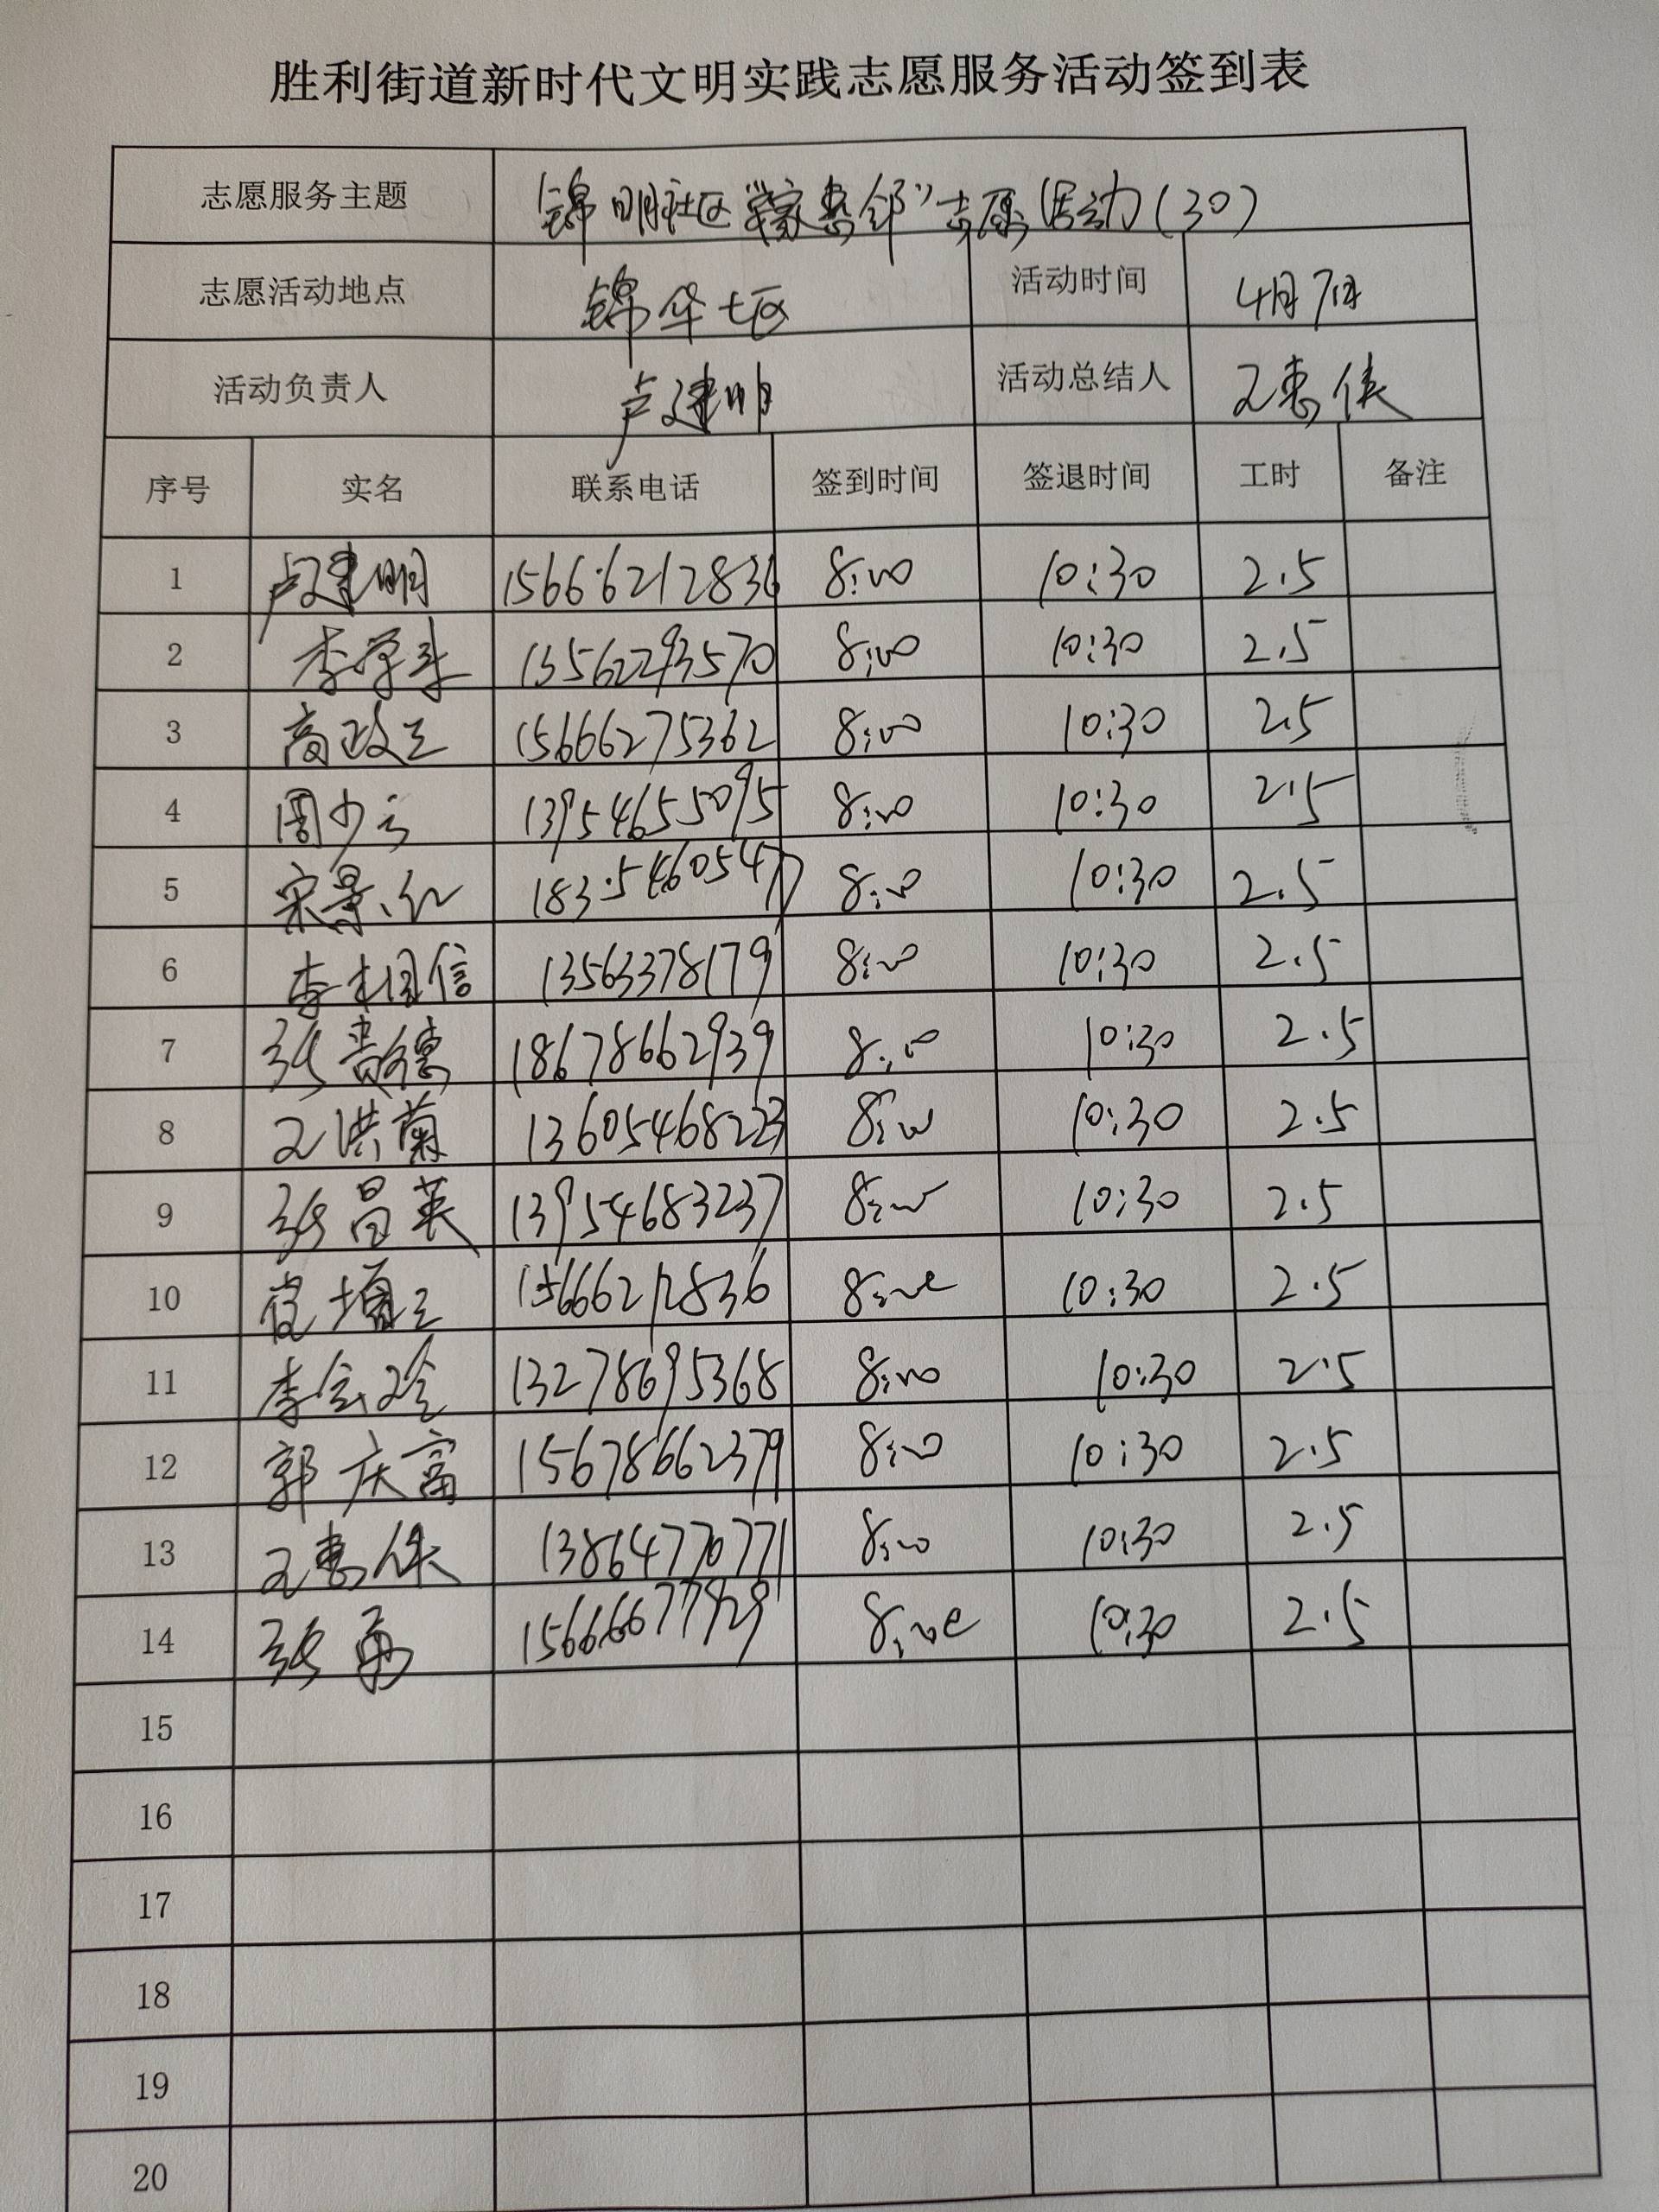 胜利街道新时代文明实践志愿服务活动签到表
志愿服务主题 锦明社区"家惠邻"志愿活动(30)
志愿活动地点 锦华七区 活动时间 4月7日
活动负责人 卢建明 活动总结人 王惠侠
序号 实名 联系电话 签到时间 签退时间 工时 备注
1 卢建明 15666212836 8:00 10:30 2.5
2 李学寿 13562293570 8:00 10:30 2.5
3 高政三 15666275362 8:00 10:30 2.5
4 周少云 13954655095 8:00 10:30 2.5
5 宋景红 18354605477 8:00 10:30 2.5
6 李相信 13563378179 8:00 10:30 2.5
7 张贵德 18678662939 8:00 10:30 2.5
8 王洪菊 13605468223 8:00 10:30 2.5
9 张昌英 13954683237 8:00 10:30 2.5
10 15666212836 8:00 10:30 2.5
11 李会玲 13278695368 8:00 10:30 2.5
12 郭庆富 15678662379 8:00 10:30 2.5
13 王惠侠 13864770771 8:00 10:30 2.5
14 张勇 15666677929 8:00 10:30 2.5
15
16
17
18
19
20